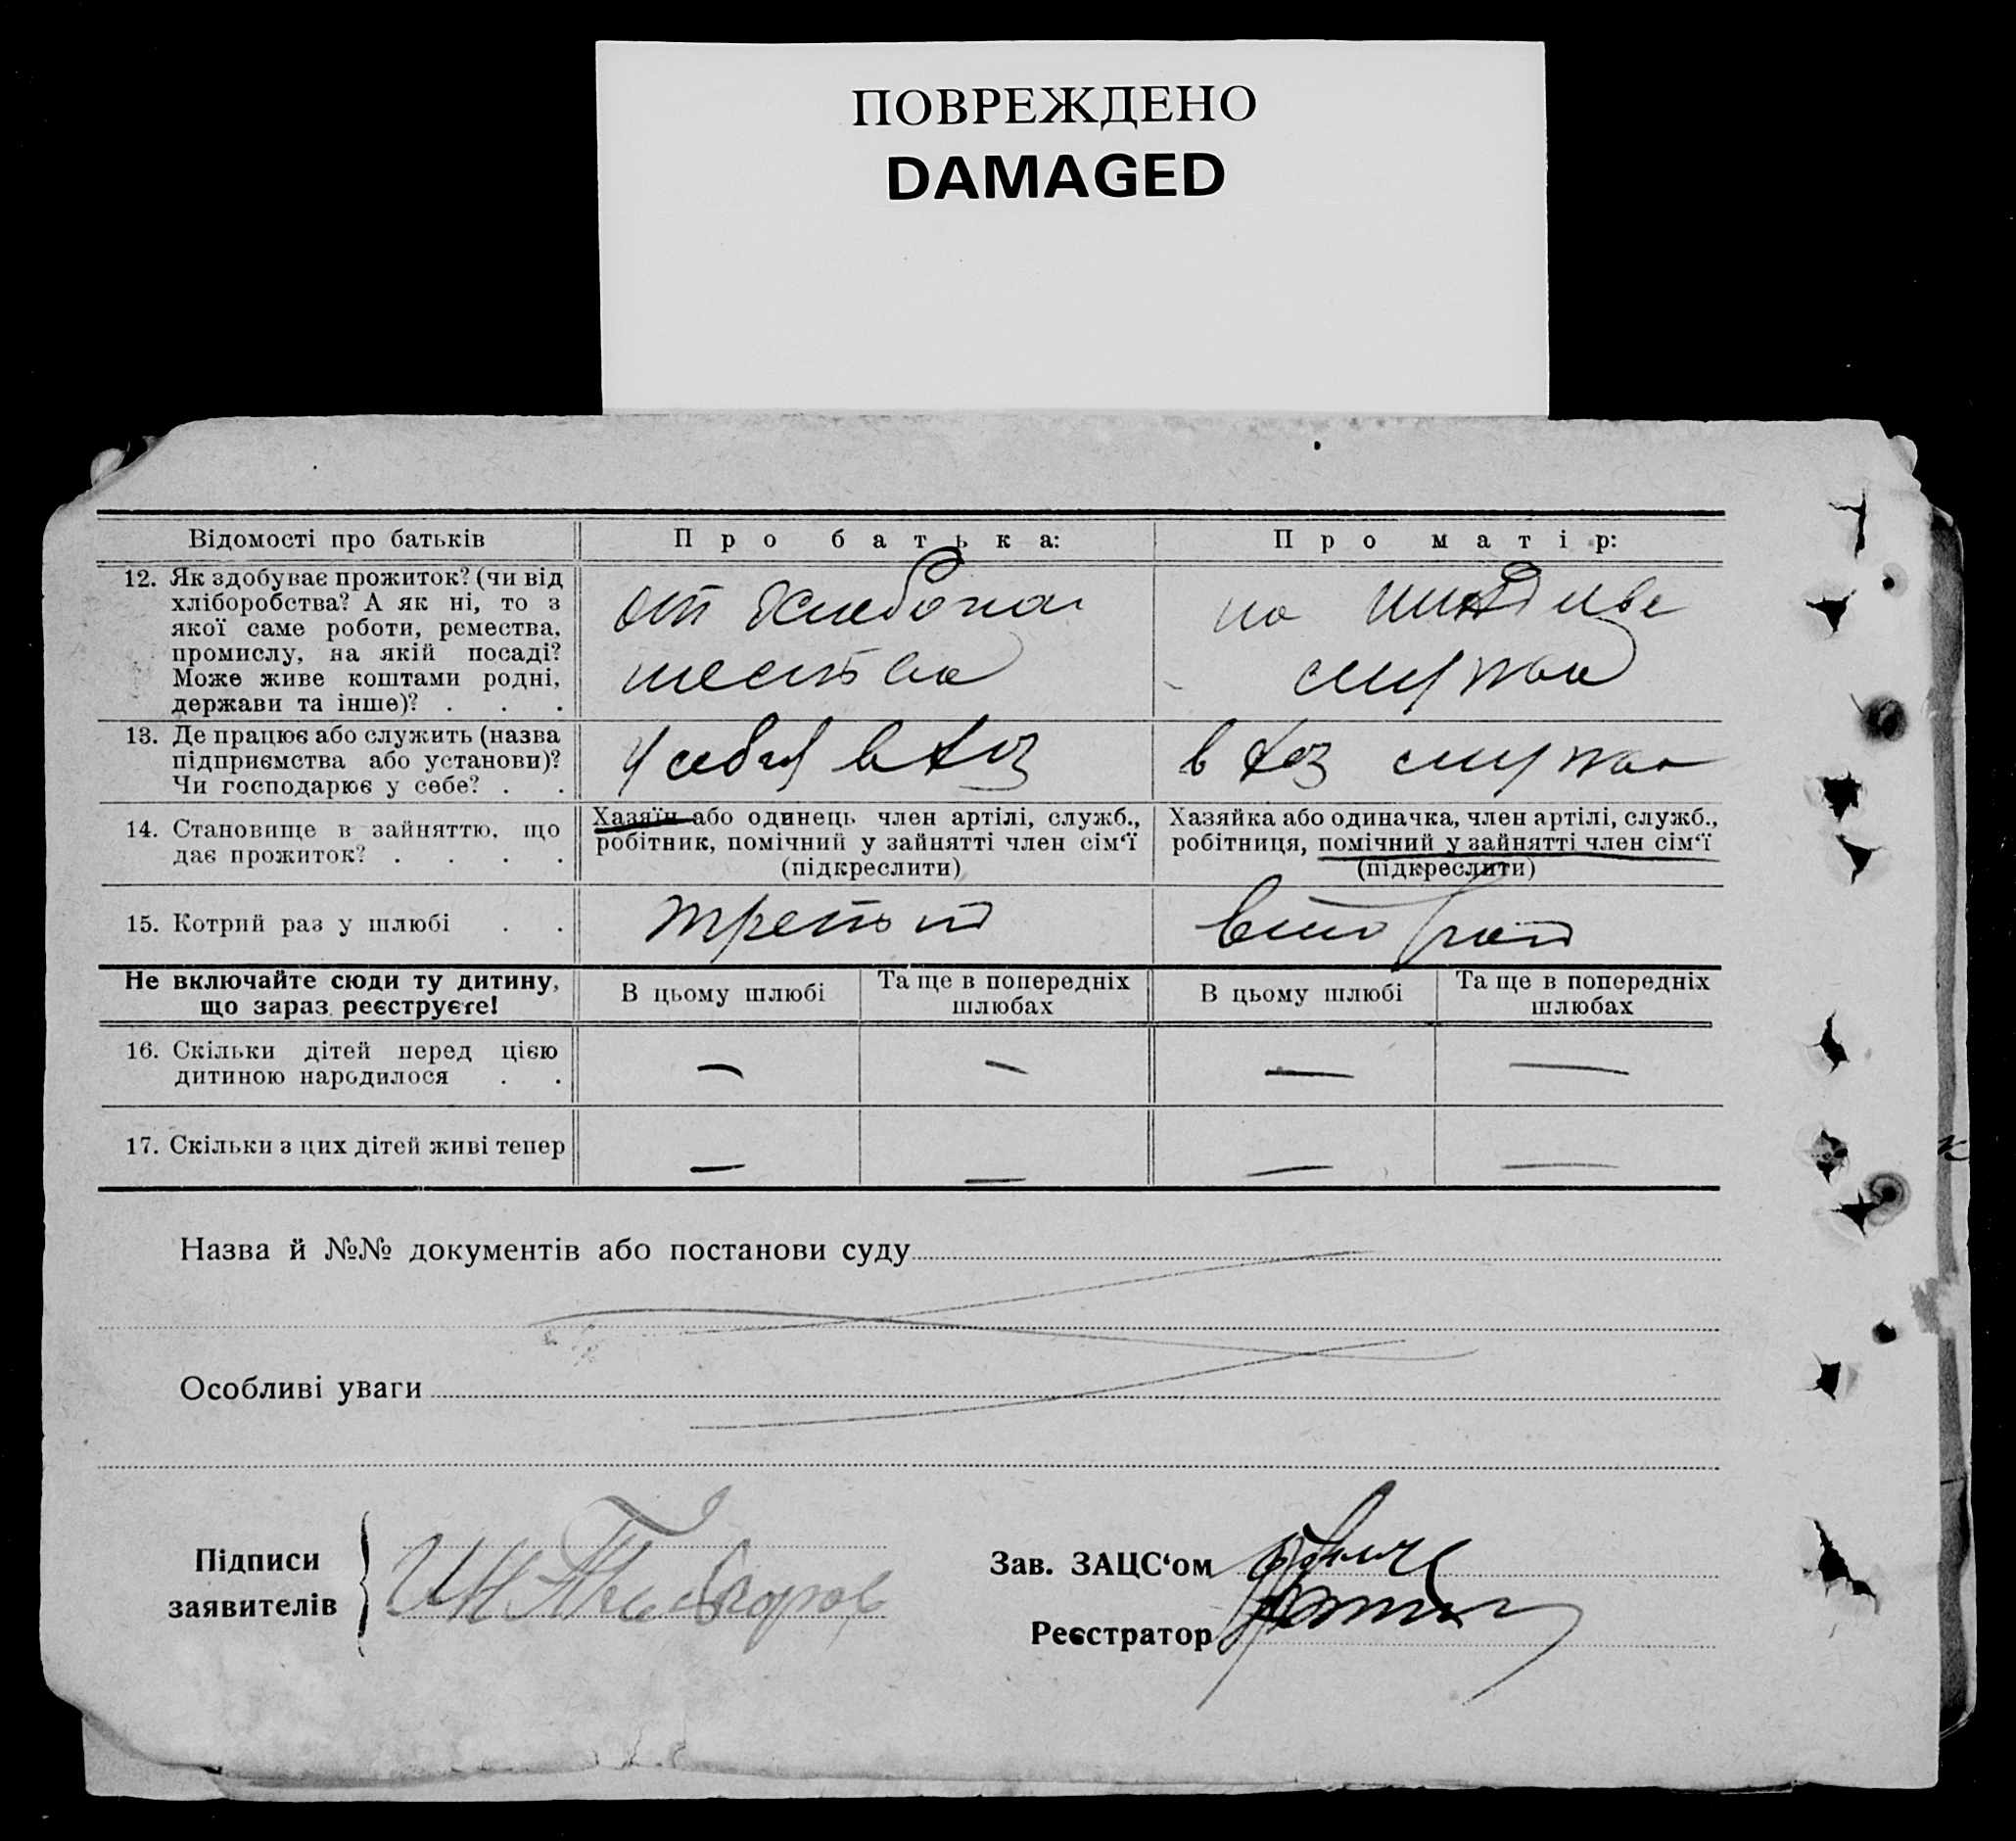 ПОВРЕЖДЕНО
DAMAGED
Відомості про батьків
Про батька:
Про матір:
12. Як здобуває прожиток? (чи від
хліборобства? А як ні, то з
якої саме роботи, ремества,
промислу, на якій посаді?
Може живе коштами родні,
держави та інше)? . . .
от хлебопа
шества
на иждиве
мужа
13. Де працює або служить (назва
підприємства або установи)?
Чи господарює у себе? . .
у себя в хоз
в хоз мужа
14. Становище в зайняттю, що
дає прожиток? . . . .
Хазяїн або одинець член артілі, служб.,
робітник, помічний у зайнятті член сім‘ї
(підкреслити)
Хазяйка або одиначка, член артілі, служб.,
робітниця, помічний у зайнятті член сім‘ї
(підкреслити)
15. Котрий раз у шлюбі . .
третий
второй
Не включайте сюди ту дитину,
що зараз реєструєте!
В цьому шлюбі
Та ще в попередніх
шлюбах
В цьому шлюбі
Та ще в попередніх
шлюбах
16. Скільки дітей перед цією
дитиною народилося . .
— — — —
17. Скільки з цих дітей живі тепер
— — — —
Назва й №№ документів або постанови суду
Особливі уваги
Підписи
заявителів
Зав. ЗАЦС‘ом
Реєстратор